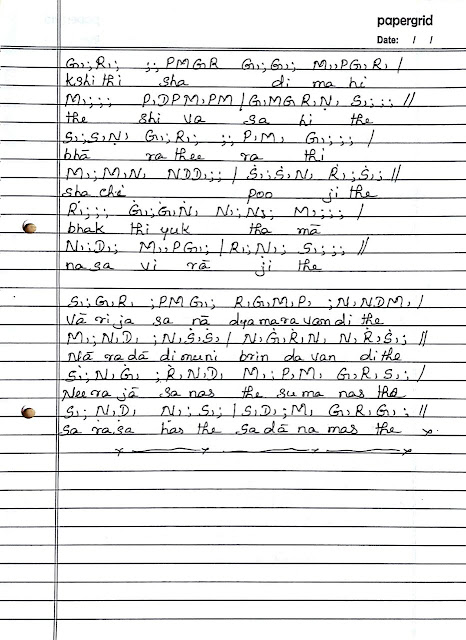 papergrid
Date: / /
G,; R,; ;; PMGR G,; G,; M,, PG, R, /
kshi thi sha di ma hi
M,;;; P, DPM, PM / G, MGR, N, S,;;; //
the shi va sa hi the
S,; S, N, G,; R,; ;; P, M, G,;;; /
bhā ra thee ra thi
M,; M, N, NDD,;; / Ṡ,; Ṡ, N, Ṙ,; Ṡ,; //
sha chē poo ji the
Ṙ,;;; Ġ,; Ġ, N, N,; N,; M,;;; /
bhak thi yuk tha mā
N,; D,; M,, PG,; / R,; N,; S,;;; //
na sa vi rā ji the
S,; G, R, ; PMG,; R, G, M, P, ; N, NDM, /
Vā ri ja sa nā dya mara van di the
M,; N, D, ; N, Ṡ, Ṡ, / N, Ġ, Ṙ, N, N, Ṙ, Ṡ,; //
Nā ra dā di muni brin da van di the
Ṡ,; N, Ġ, ; Ṙ, N, D, M,; P, M, G, R, S,; /
Nee ra jā sa nas the su ma nas the
S,; N, D, N,; S,; / S, D,; M, G, R, G,; //
sa ra sa has the sa dā na mas the x